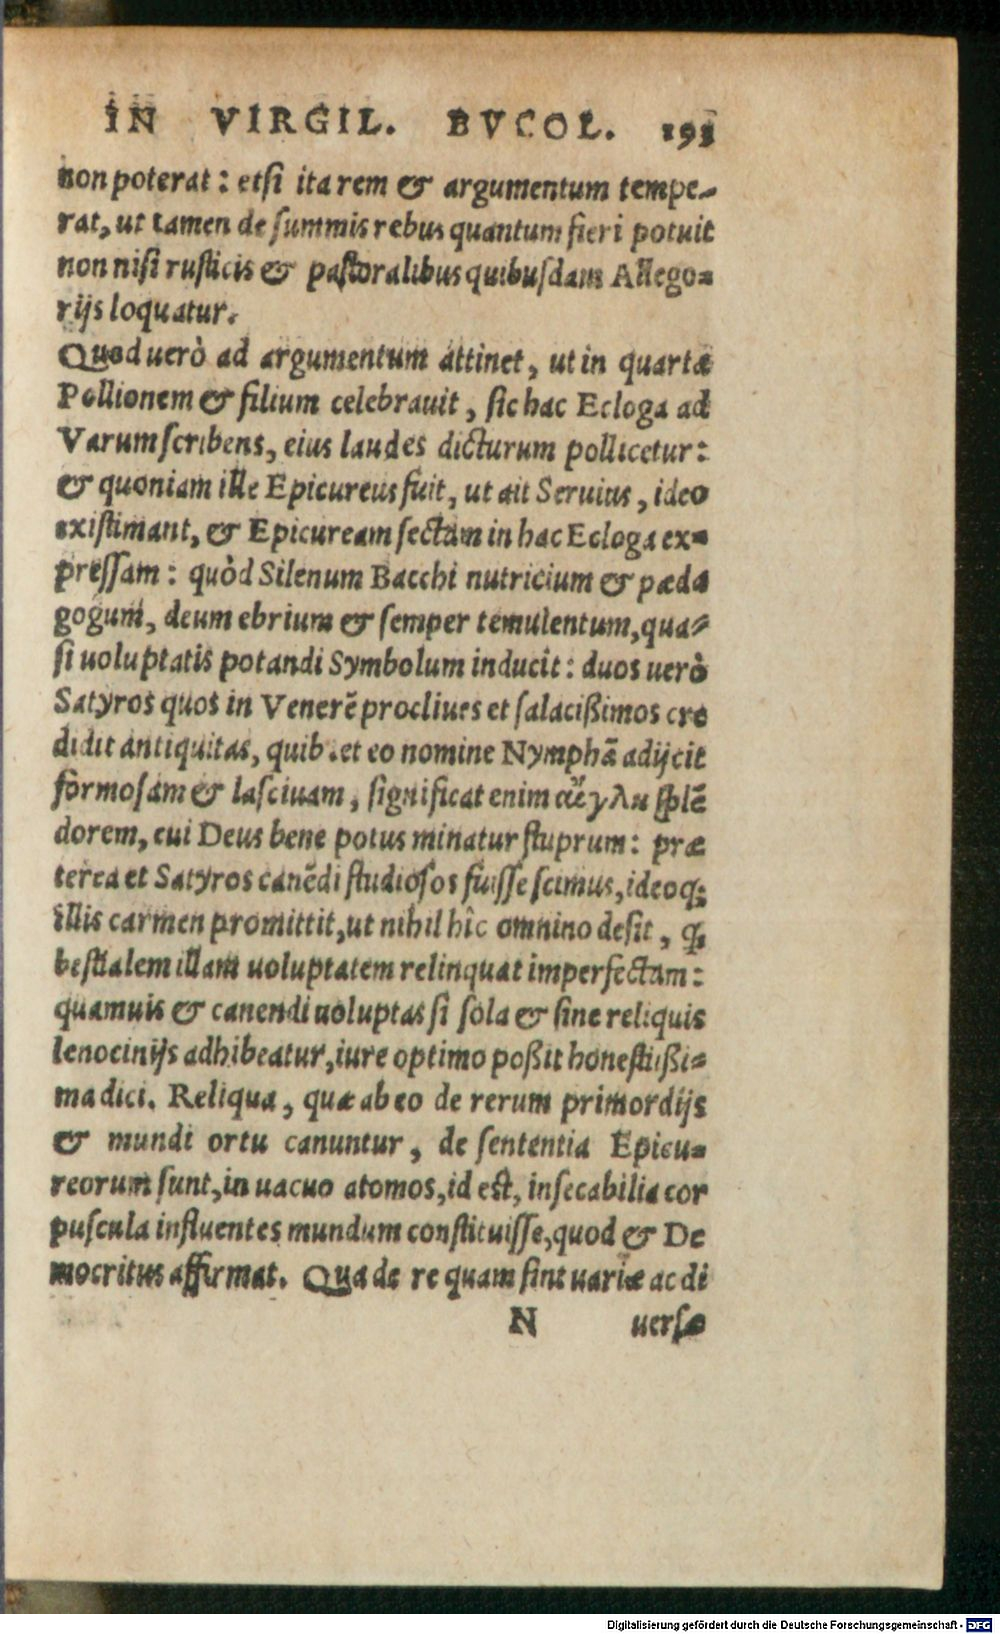 IN VIRGIL. BVCOL. 193
non poterat: etsi ita rem & argumentum tempe-
rat, ut tamen de summis rebus quantum fieri potuit
non nisi rusticis & pastoralibus quibusdam Allego-
rijs loquatur.
Quod uerò ad argumentum attinet, ut in quarta
Pollionem & filium celebrauit, sic hac Ecloga ad
Varum scribens, eius laudes dicturum pollicetur:
& quoniam ille Epicureus fuit, ut ait Seruius, ideo
existimant, & Epicuream sectam in hac Ecloga ex-
pressam: quòd Silenum Bacchi nutricium & pæda
gogum, deum ebrium & semper temulentum, qua-
si uoluptatis potandi Symbolum inducit: duos uerò
Satyros quos in Venerẽ procliues et salacißimos cre
didit antiquitas, quib. et eo nomine Nymphã adijcit
formosam & lasciuam, significat enim αἴγλη splẽ
dorem, cui Deus bene potus minatur stuprum: præ
terea et Satyros canẽdi studiosos fuisse scimus, ideoq;
illis carmen promittit, ut nihil hîc omnino desit, q̃
bestialem illam uoluptatem relinquat imperfectam:
quamuis & canendi uoluptas si sola & sine reliquis
lenocinijs adhibeatur, iure optimo poßit honestißi-
ma dici. Reliqua, quæ ab eo de rerum primordijs
& mundi ortu canuntur, de sententia Epicu-
reorum sunt, in uacuo atomos, id est, insecabilia cor
puscula influentes mundum constituisse, quod & De
mocritus affirmat. Qua de re quam sint uariæ ac di
N uersæ
Digitalisierung gefördert durch die Deutsche Forschungsgemeinschaft - DFG